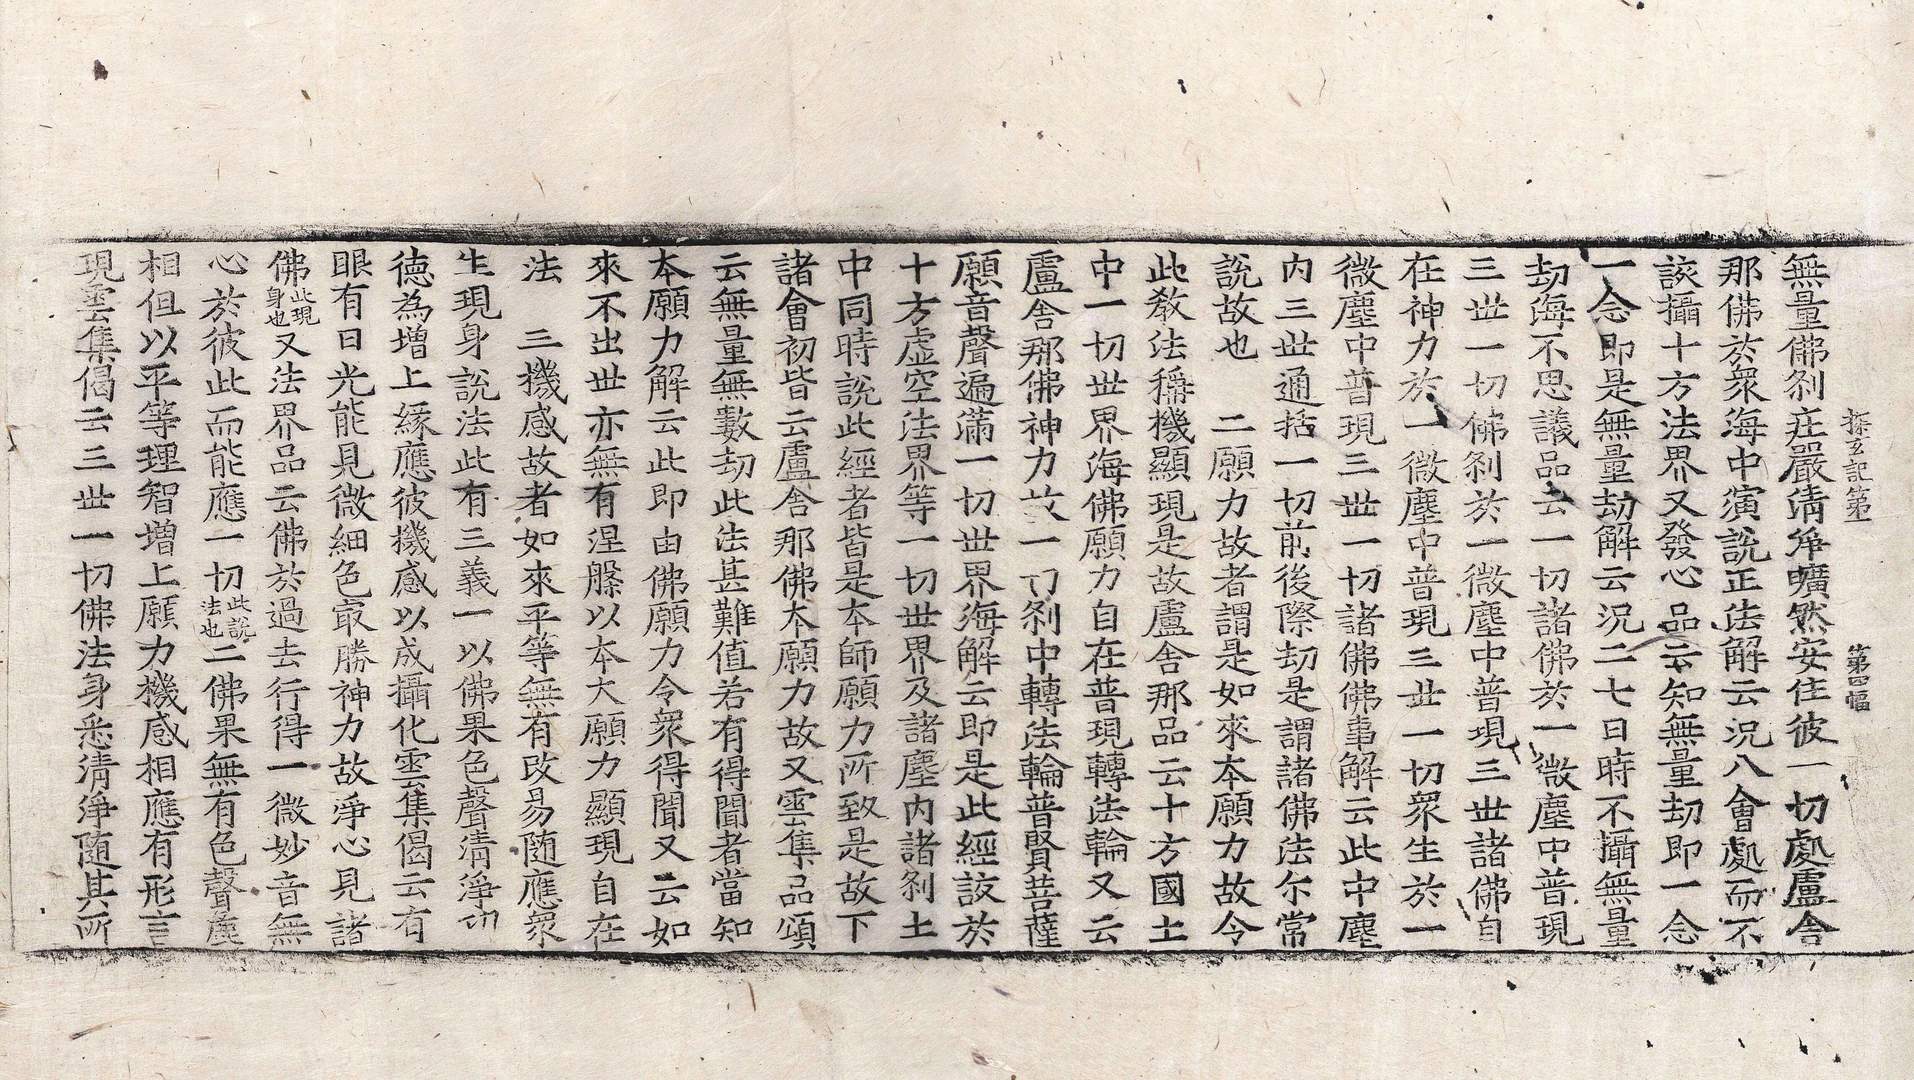 探玄記第一 第四幅
無量佛刹莊嚴清淨曠然安住彼一切處盧舍
那佛於衆海中演說正法解云況八會處而不
該攝十方法界又發心品云知無量劫即一念
一念即是無量劫解云況二七日時不攝無量
劫海不思議品云一切諸佛於一微塵中普現
三世一切佛刹於一微塵中普現三世諸佛自
在神力於一微塵中普現三世一切衆生於一
微塵中普現三世一切諸佛佛事解云此中塵
內三世通括一切前後際劫是謂諸佛法尒常
說故也 二願力故者謂是如來本願力故令
此敎法稱機顯現是故盧舍那品云十方國土
中一切世界海佛願力自在普現轉法輪又云
盧舍那佛神力故一切刹中轉法輪普賢菩薩
願音聲遍滿一切世界海解云即是此經該於
十方虛空法界等一切世界及諸塵內諸刹土
中同時說此經者皆是本師願力所致是故下
諸會初皆云盧舍那佛本願力故又雲集品頌
云無量無數劫此法甚難值若有得聞者當知
本願力解云此即由佛願力令衆得聞又云如
來不出世亦無有涅槃以本大願力顯現自在
法 三機感故者如來平等無有改易隨應衆
生現身說法此有三義一以佛果色聲清淨功
德為增上緣應彼機感以成攝化雲集偈云有
眼有日光能見微細色㝡勝神力故淨心見諸
佛此現身也又法界品云佛於過去行得一微妙音無
心於彼此而能應一切此說法也二佛果無有色聲麁
相但以平等理智增上願力機感相應有形言
現雲集偈云三世一切佛法身悉清淨随其所